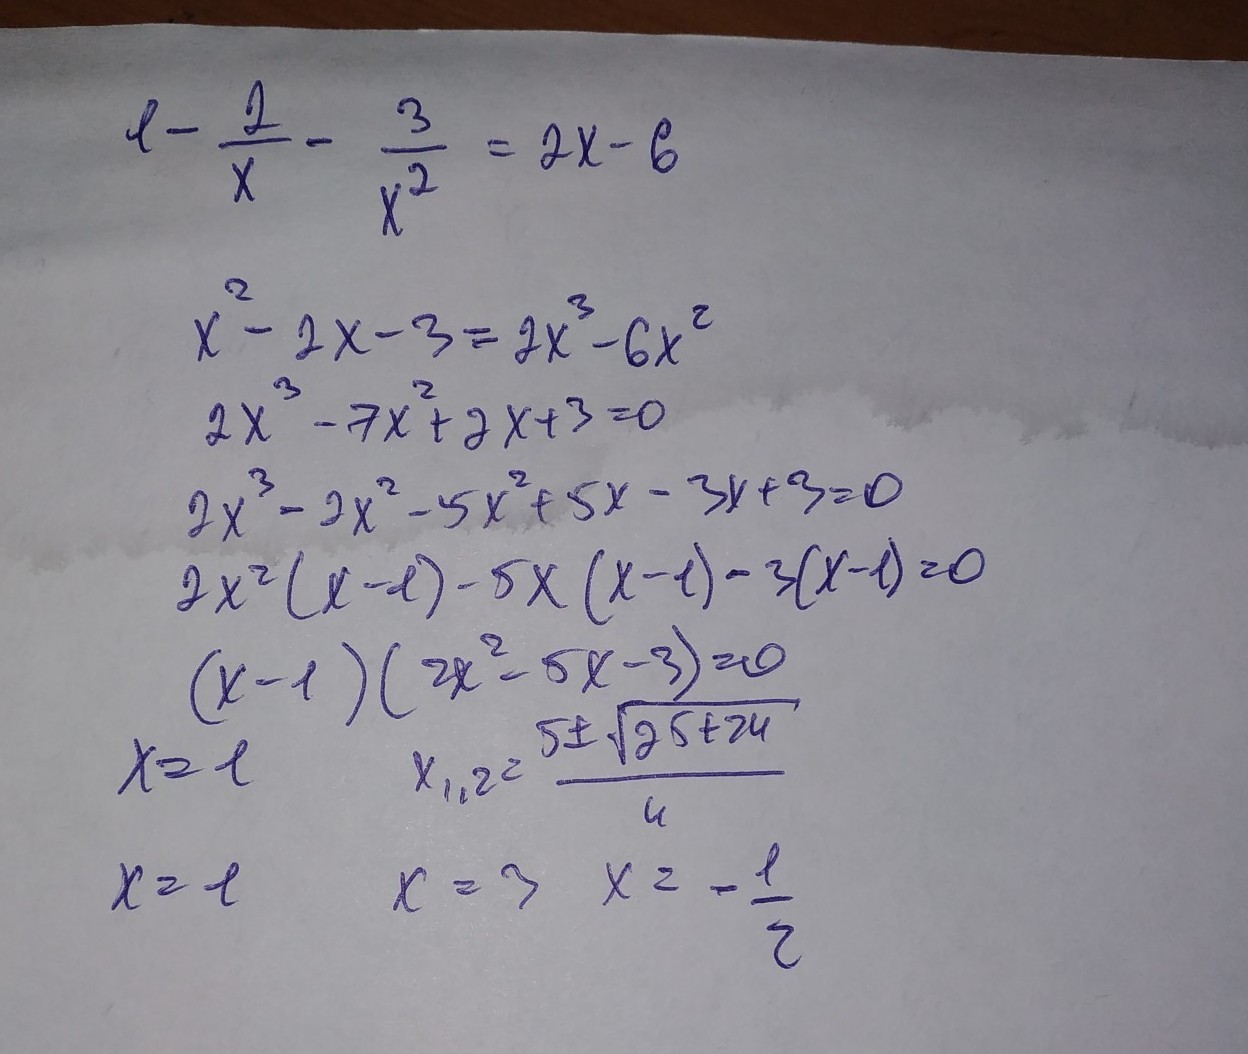 1 - 2/x - 3/x² = 2x - 6
x² - 2x - 3 = 2x³ - 6x²
2x³ - 7x² + 2x + 3 = 0
2x³ - 2x² - 5x² + 5x - 3x + 3 = 0
2x² (x - 1) - 5x (x - 1) - 3(x - 1) = 0
(x - 1) (2x² - 5x - 3) = 0
x = 1 x₁,,₂ = (5 ± √(25 + 24))/4
x = 1 x = 3 x = - 1/2